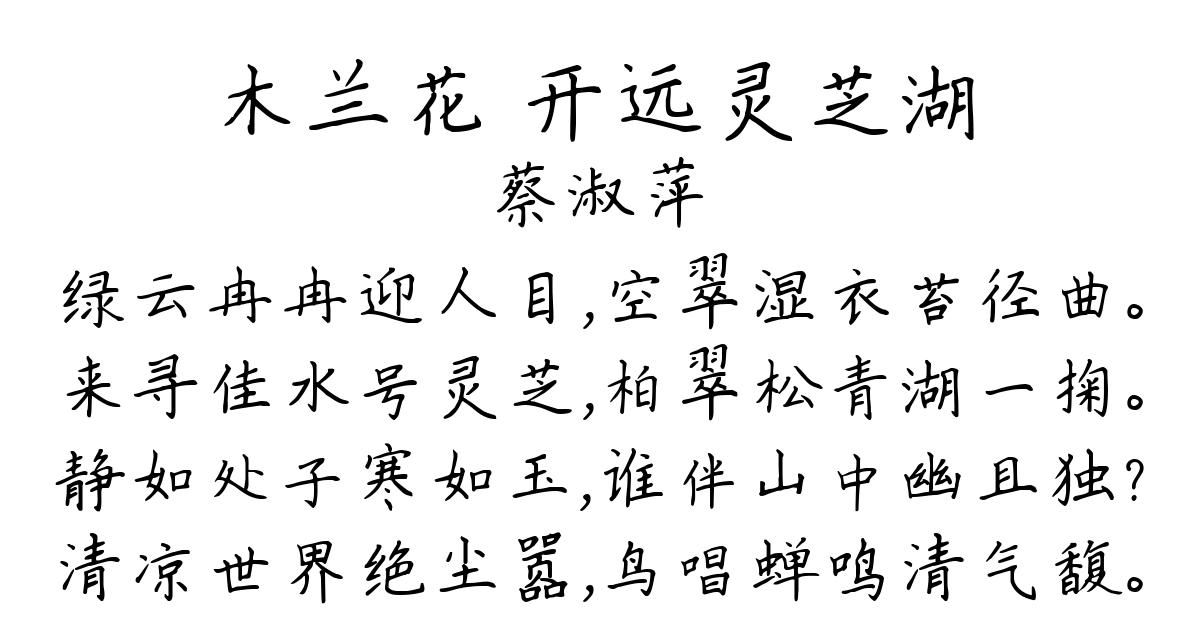 木兰花 开远灵芝湖
蔡淑萍
绿云冉冉迎人目,空翠湿衣苔径曲。
来寻佳水号灵芝,柏翠松青湖一掬。
静如处子寒如玉,谁伴山中幽且独?
清凉世界绝尘嚣,鸟唱蝉鸣清气馥。